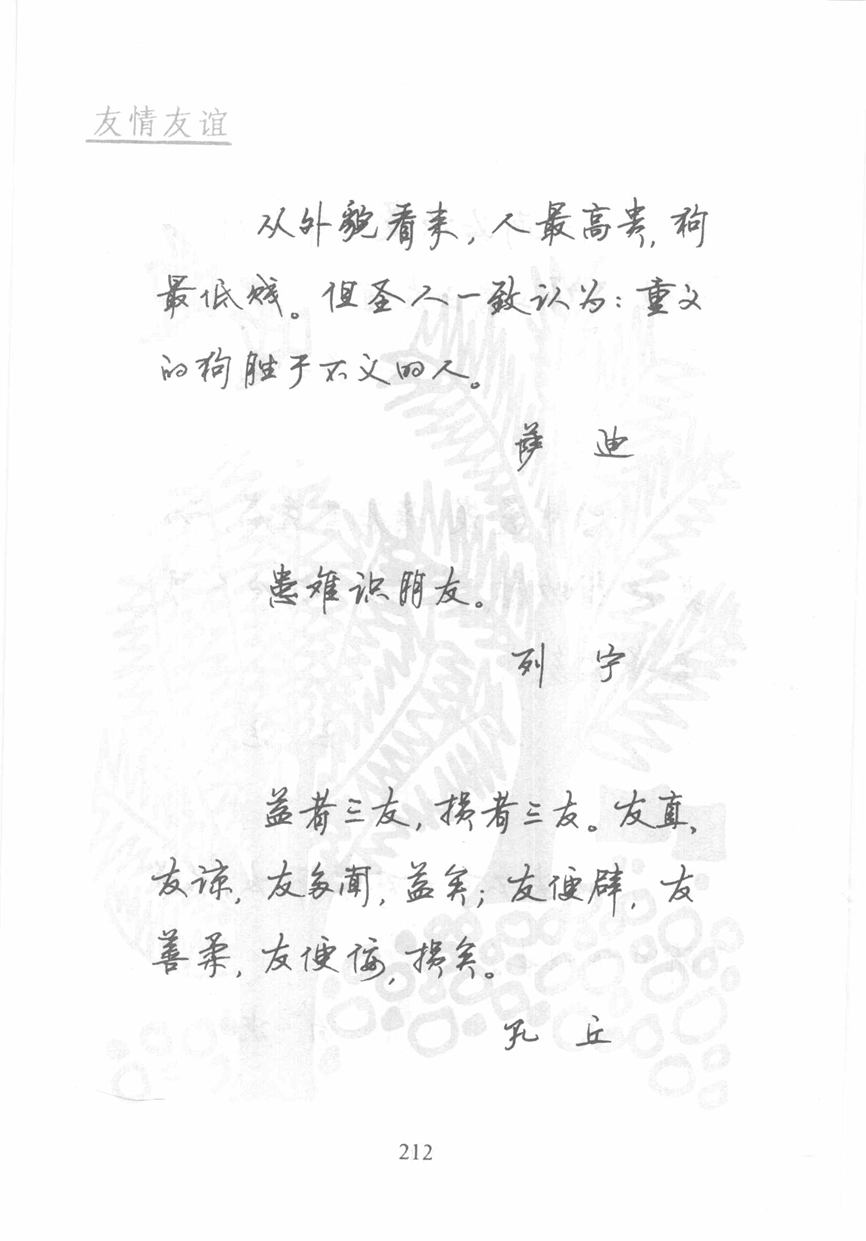 友情友谊
从外貌看来，人最高贵，狗
最低贱。但圣人一致认为：重义
的狗胜于不义的人。
萨 迪
患难识朋友。
列 宁
益者三友，损者三友。友直，
友谅，友多闻，益矣；友便辟，友
善柔，友便佞，损矣。
孔 丘
212